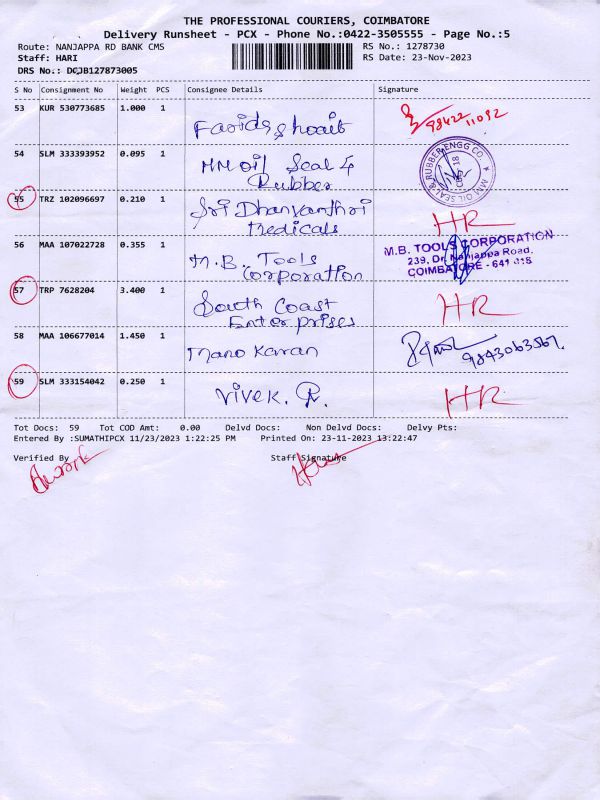 THE PROFESSIONAL COURIERS, COIMBATORE
Delivery Runsheet - PCX - Phone No.:0422-3505555 - Page No.:5
Route: NANJAPPA RD BANK CMS
RS No.: 1278730
Staff: HARI
RS Date: 23-Nov-2023
DRS No.: DCJB127873005
S No Consignment No Weight PCS Consignee Details Signature
53 KUR 530773685 1.000 1
98422 11092
54 SLM 333393952 0.095 1 MM Oil Seal &
Rubber
MM OIL SEAL & RUBBER ENGG CO.
55 TRZ 102096697 0.210 1 Sri Dhanvanthri
Medicals
HR
56 MAA 107022728 0.355 1 M.B. Tools
Corporation
M.B. TOOLS CORPORATION
239, Dr. Nanjappa Road,
COIMBATORE - 641 018
57 TRP 7628204 3.400 1 South Coast
Enterprises
HR
58 MAA 106677014 1.450 1 Mano Karan
9843063567
59 SLM 333154042 0.250 1 Vivek. R.
HR
Tot Docs: 59 Tot COD Amt: 0.00 Delvd Docs: Non Delvd Docs: Delvy Pts:
Entered By :SUMATHIPCX 11/23/2023 1:22:25 PM Printed On: 23-11-2023 13:22:47
Verified By Staff Signature